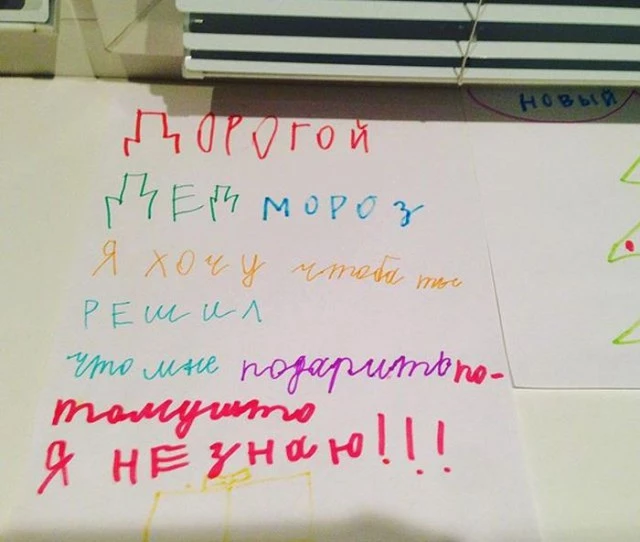 НОВЫЙ
ДОРОГОЙ
ДЕД МОРОЗ
Я ХОЧУ чтоба ты
РЕШИЛ
что мне подарить по-
томушто
Я НЕ ЗНАЮ!!!